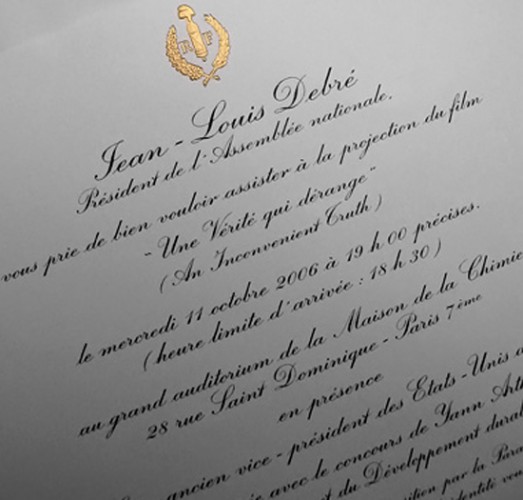 RF
Jean-Louis Debré
Président de l'Assemblée nationale.
vous prie de bien vouloir assister à la projection du film
"Une Vérité qui dérange"
(An Inconvenient Truth)
le mercredi 11 octobre 2006 à 19 h 00 précises.
(heure limite d'arrivée : 18 h 30)
au grand auditorium de la Maison de la Chimie
28 rue Saint Dominique - Paris 7ème
en présence
ancien vice-président des Etats-Unis
avec le concours de Yann
du Développement
par la